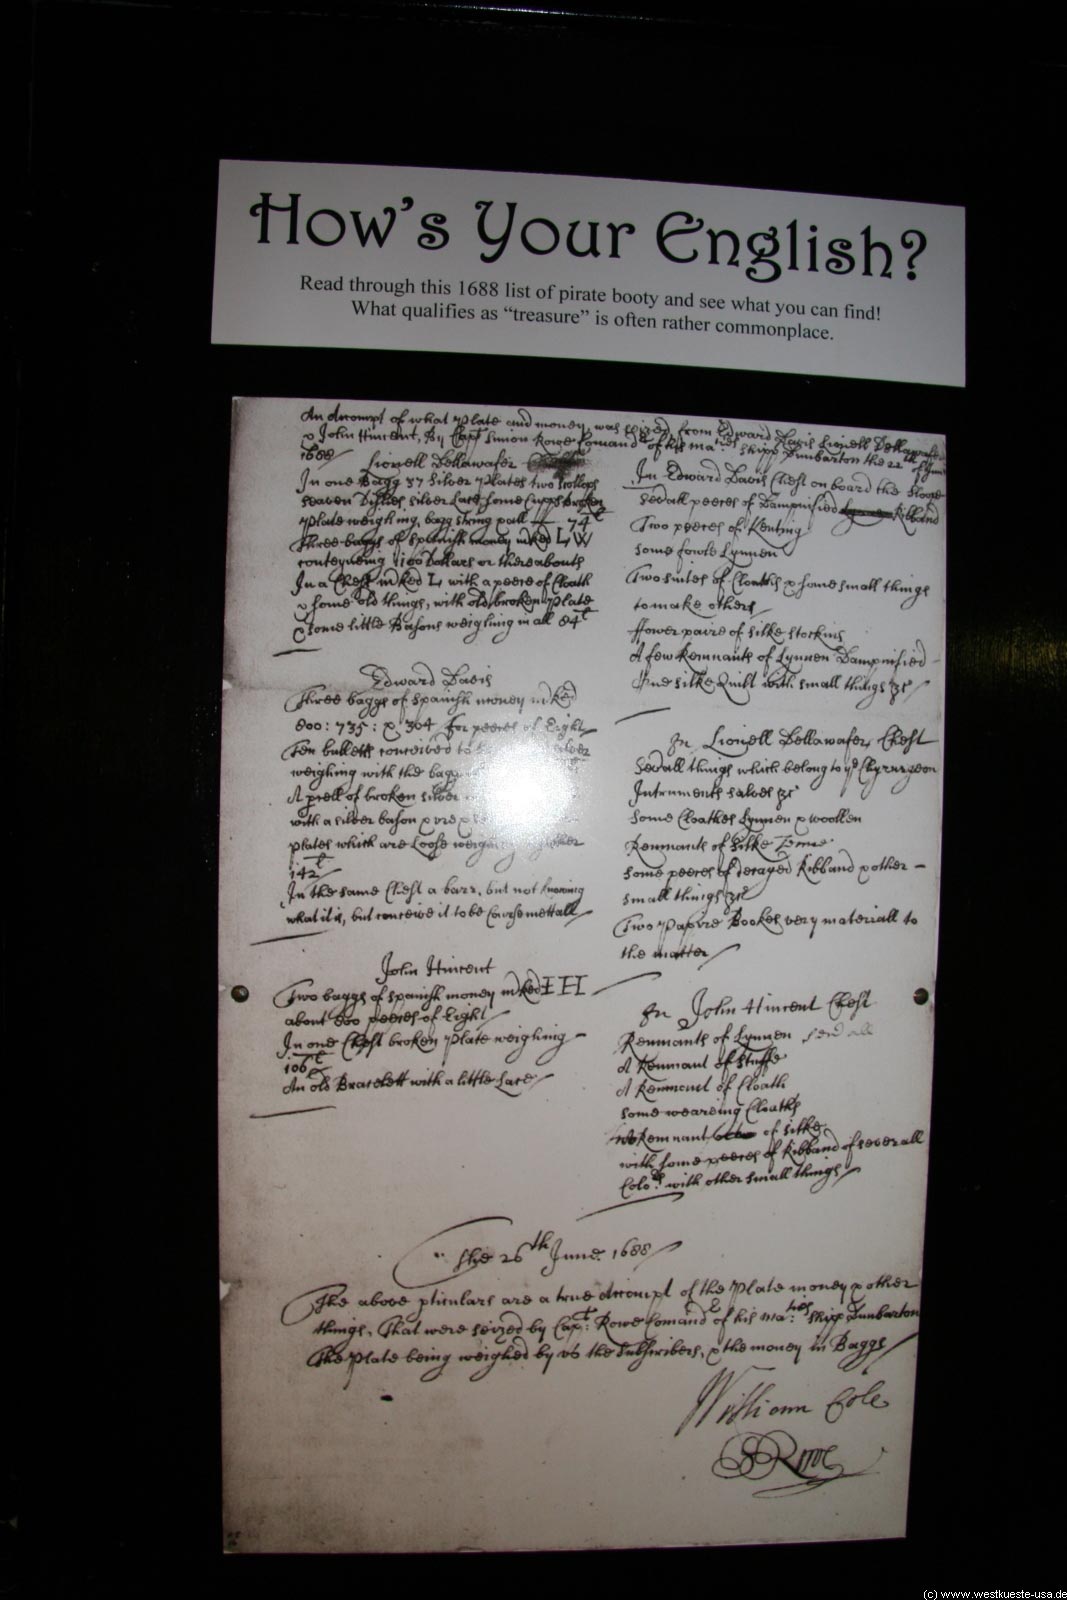 How's Your English?
Read through this 1688 list of pirate booty and see what you can find!
What qualifies as “treasure” is often rather commonplace.
An Accompt of what Plate and money was seized from Edward Davis Lionell Dellawafer
x John Hincent, By Capt Simon Rowe Comandr of his maties shipp Dunbarton the 22th of June
1688
Lionell Dellawafer
In one Bagg 37 Silver Plates two scollops
seaven Dishes silver Lace some Cupps broken
Plate weighing, bagg string x all 74 l
Three baggs of spanish money mked LW
conteyneing 1100 Dollars or thereabouts
In a Chest mked L with a peece of Cloath
x some old things, with old broken Plate
x some little Basons weighing in all 84 l
Edward Davis
Three baggs of spanish money mked
800: 735: x 304 for peeces of Eight
Ten bulletts conceived to silver
weighing with the bagg
A pcell of broken silver
with a silver bason x
plates which are Loose
142 l
In the same Chest a barr, but not knowing
what it is, but conceive it to be Coursemettall
John Hincent
Two baggs of spanish money mked IH
about 800 peeces of Eight
In one Chest broken Plate weighing
106 l
An old Bracelett with a little Lace
In Edward Davis Chest on board the Sloope
Sevall peeces of Dampnified Ribband
Two peeces of Kenting
some fowle Lynnen
Two suites of Cloaths x some small things
to make others
ffower paire of silke stockins
A few Remnants of Lynnen Dampnified
One silke Quilt with small things
In Lionell Dellawafer, Chest
Sevall things which belong to ye Chyrurgeon
Intruments salves
some Cloathes Lynnen x woollen
Remnants of silke
some peeces of decayed Ribband x other
small things
Two Papire Bookes very materiall to
the matter
In John Hincent Chest
Remnants of Lynnen
A Remnant of stuffe
A Remnant of Cloath
some weareing Cloaths
Remnant of silke
with some peeces of Ribband of severall
Colors with other small things
The 26th June. 1688
The above pticulars are a true Accompt of the Plate money x other
things, That were seized by Capt: Rowe Comandr of his maties: shipp Dunbarton
The Plate being weighed by us the Subscribers, x the money in Baggs
William Cole
S Rowe
(c) www.westkueste-usa.de